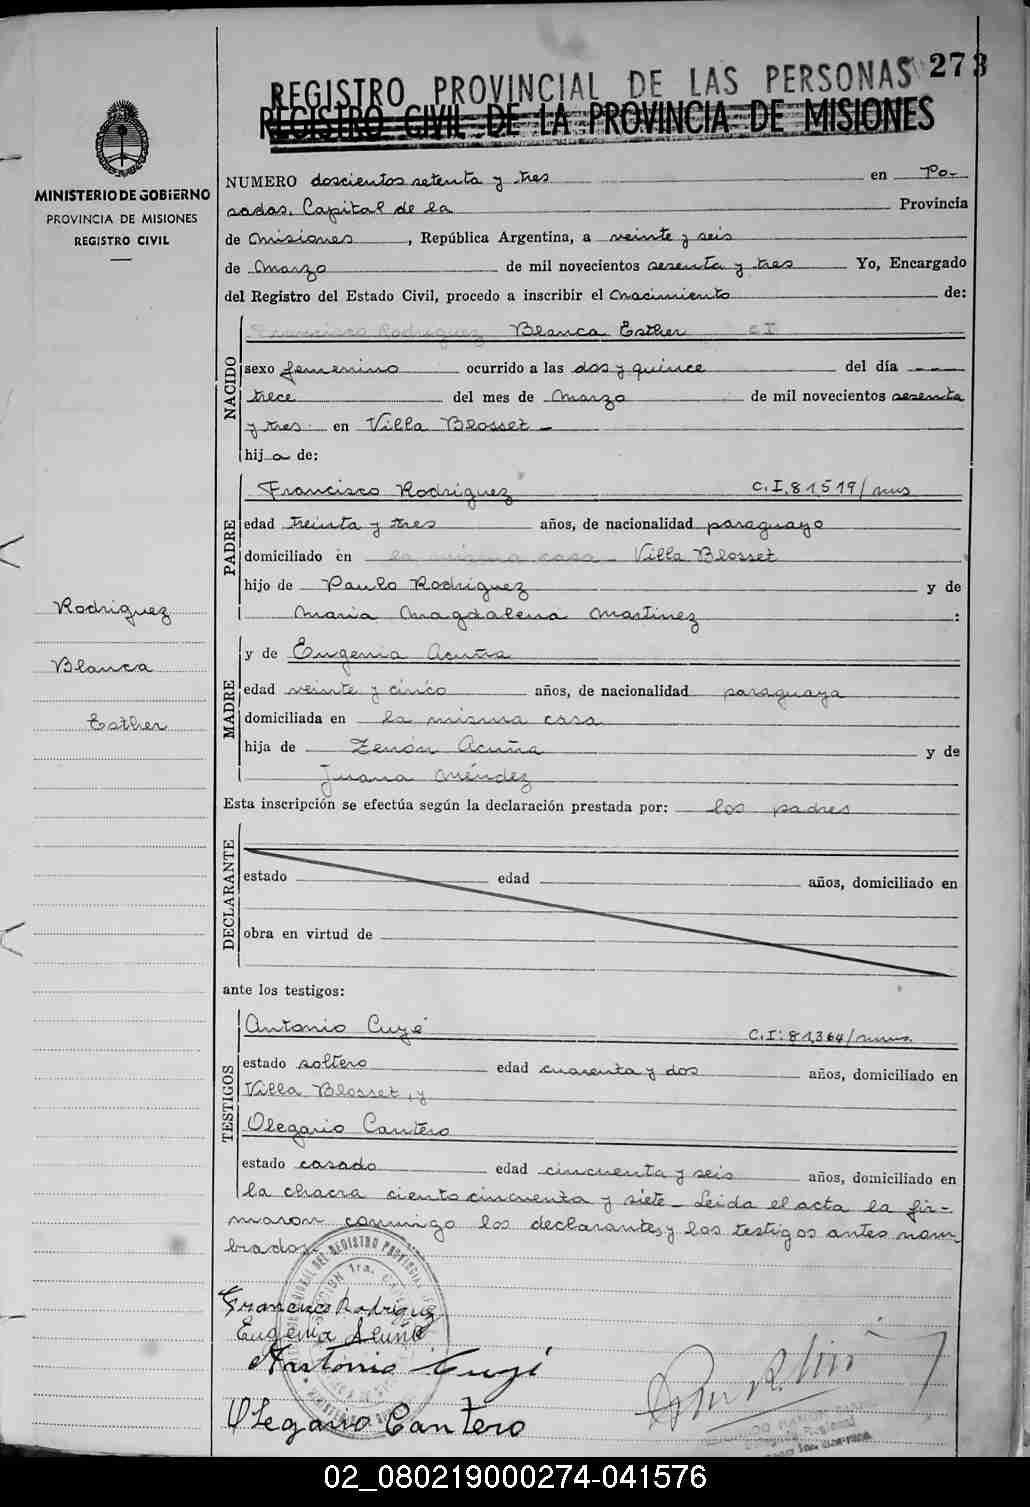 REGISTRO PROVINCIAL DE LAS PERSONAS 273
REGISTRO CIVIL DE LA PROVINCIA DE MISIONES
MINISTERIO DE GOBIERNO
PROVINCIA DE MISIONES
REGISTRO CIVIL
NUMERO doscientos setenta y tres en Po-
sadas. Capital de la Provincia
de Misiones, República Argentina, a veinte y seis
de Marzo de mil novecientos sesenta y tres Yo, Encargado
del Registro del Estado Civil, procedo a inscribir el Nacimiento de:
NACIDO
Francisco Rodriguez Blanca Esther C I
sexo femenino ocurrido a las dos y quince del día ---
trece del mes de Marzo de mil novecientos sesenta
y tres en Villa Blosset -
hija de:
PADRE
Francisco Rodriguez C.I. 81519/mns
edad treinta y tres años, de nacionalidad paraguayo
domiciliado en la misma casa - Villa Blosset
hijo de Paulo Rodriguez y de
Maria Magdalena Martinez :
Rodriguez
Blanca
Esther
MADRE
y de Eugenia Acuña
edad veinte y cinco años, de nacionalidad paraguaya
domiciliada en la misma casa
hija de Zenón Acuña y de
Juana Méndez
Esta inscripción se efectúa según la declaración prestada por: los padres
DECLARANTE
estado edad años, domiciliado en
obra en virtud de
ante los testigos:
TESTIGOS
Antonio Cuyé C.I: 81.364/mns.
estado soltero edad cuarenta y dos años, domiciliado en
Villa Blosset, y
Olegario Cantero
estado casado edad cincuenta y seis años, domiciliado en
la chacra ciento cincuenta y siete - Leida el acta la fir-
maron conmigo los declarantes y los testigos antes nom-
brados.
Francisco Rodriguez
Eugenia Acuña
Antonio Cuyé
Olegario Cantero
02_080219000274-041576